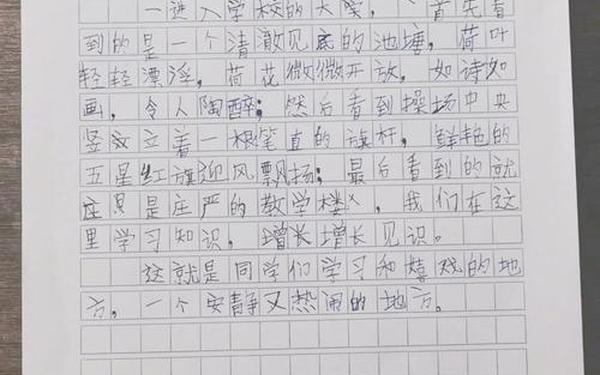 一进入学校的大堂，首先看
到的是一个清澈见底的池塘，荷叶
轻轻漂浮，荷花微微开放，如诗如
画，令人陶醉；然后看到操场中央
竖立着一根笔直的旗杆，鲜艳的
五星红旗迎风飘扬；最后看到的就
是庄严的教学楼，我们在这
里学习知识，增长增长见识。
这就是同学们学习和嬉戏的地
方，一个安静又热闹的地方。